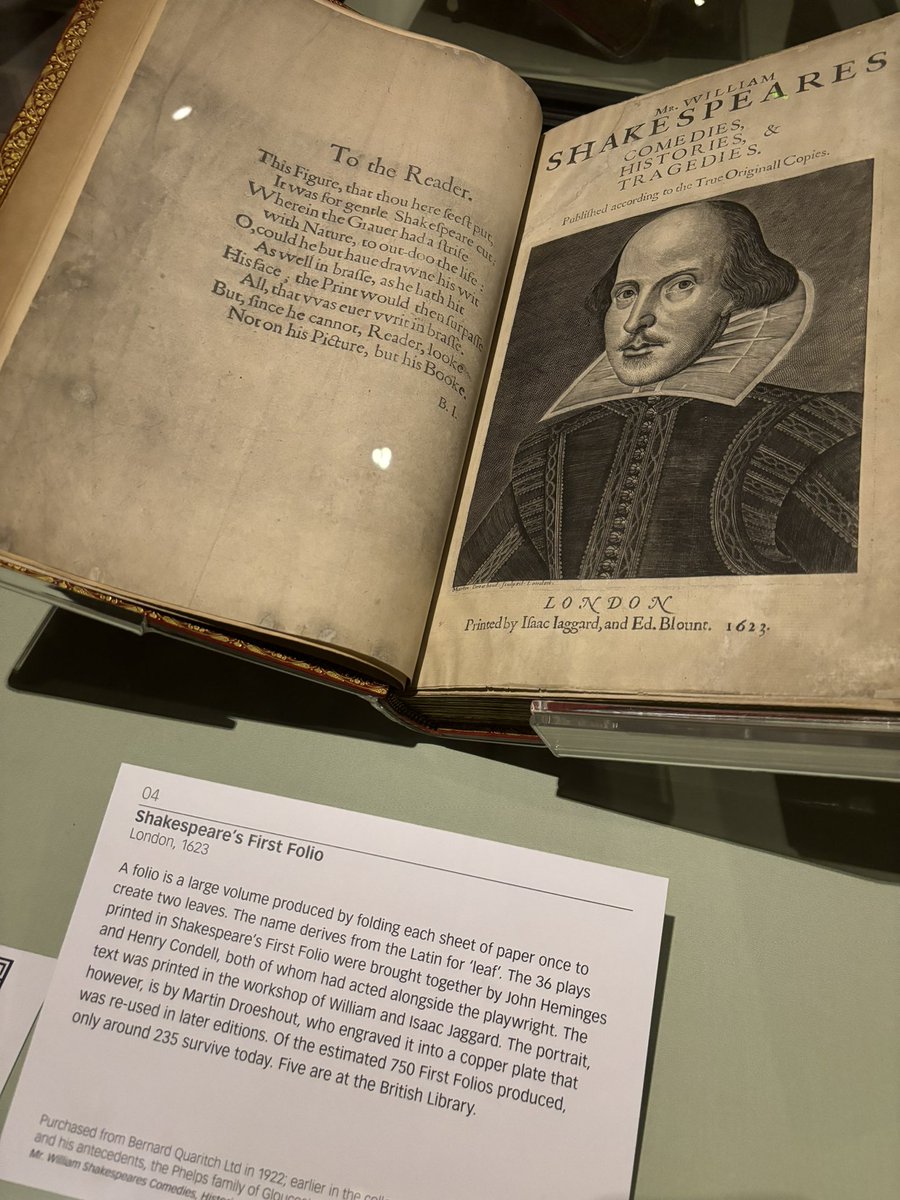 To the Reader.
This Figure, that thou here ſeeſt put,
It was for gentle Shakeſpeare cut;
Wherein the Grauer had a ſtrife
with Nature, to out-doo the life :
O, could he but haue drawne his wit
As well in braſſe, as he hath hit
His face ; the Print would then ſurpaſſe
All, that vvas euer vvrit in braſſe.
But, ſince he cannot, Reader, looke
Not on his Picture, but his Booke.
B. I.
Mr. WILLIAM
SHAKESPEARES
COMEDIES,
HISTORIES, &
TRAGEDIES.
Publiſhed according to the True Originall Copies.
Martin Droeshout ſculpſit London.
LONDON
Printed by Iſaac Iaggard, and Ed. Blount. 1623.
04
Shakespeare's First Folio
London, 1623
A folio is a large volume produced by folding each sheet of paper once to
create two leaves. The name derives from the Latin for 'leaf'. The 36 plays
printed in Shakespeare's First Folio were brought together by John Heminges
and Henry Condell, both of whom had acted alongside the playwright. The
text was printed in the workshop of William and Isaac Jaggard. The portrait,
however, is by Martin Droeshout, who engraved it into a copper plate that
was re-used in later editions. Of the estimated 750 First Folios produced,
only around 235 survive today. Five are at the British Library.
Purchased from Bernard Quaritch Ltd in 1922; earlier in the
and his antecedents, the Phelps family of
Mr. William Shakespeares Comedies,